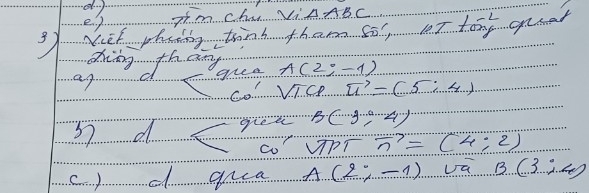 d)
e) Tìm chu vi ΔABC
3) Viết phương trình tham số, PT tổng quát
đường thẳng
a) d < qua A(2; -1)
có VTCP u⃗ = (5; 4)
b) d < qua B(3; 4)
có VTPT n⃗ = (4; 2)
c.) d qua A(2; -1) và B(3; 4)